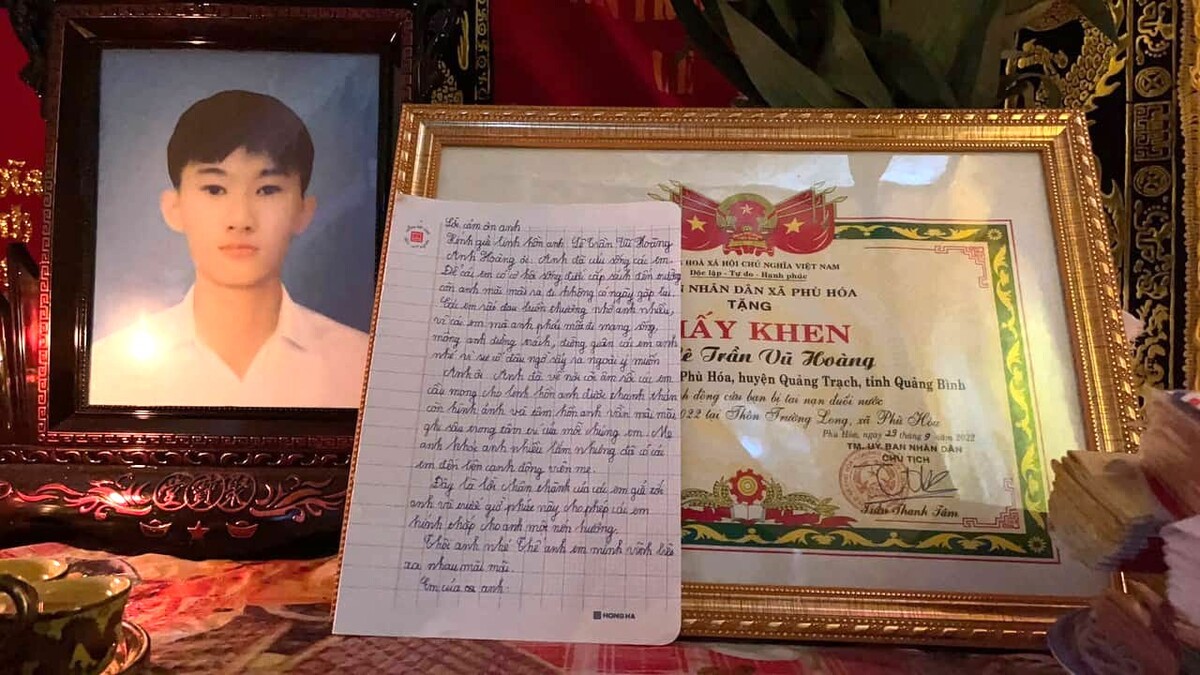 Lời cảm ơn anh
Kính gửi linh hồn anh Lê Trần Vũ Hoàng
Anh Hoàng ơi. Anh đã cứu sống các em.
Để các em có cơ hội sống được cắp sách đến trường
còn anh mãi mãi ra đi không có ngày gặp lại.
Các em rất đau buồn thương nhớ anh nhiều,
vì các em mà anh phải mất đi mạng sống,
mong anh đừng trách, đừng giận các em anh
nhé vì sự cố đâu ngờ sảy ra ngoài ý muốn
Anh ơi. Anh đã về nơi cõi âm rồi các em
cầu mong cho linh hồn anh được thanh thản
còn hình ảnh và tâm hồn anh vẫn mãi mãi
ghi sâu trong tâm trí của mỗi chúng em. Mẹ
anh khóc anh nhiều lắm nhưng đã có các
em đến bên cạnh động viên mẹ.
Đây là lời chân thành của các em gửi tới
anh và trước giờ phút này cho phép các em
kính thắp cho anh một nén hương.
Thôi anh nhé Thế anh em mình vĩnh biệt
xa nhau mãi mãi.
Em của anh.
HONG HA
HOÀ XÃ HỘI CHỦ NGHĨA VIỆT NAM
Độc lập - Tự do - Hạnh phúc
NHÂN DÂN XÃ PHÙ HÓA
TẶNG
GIẤY KHEN
Lê Trần Vũ Hoàng
Phù Hóa, huyện Quảng Trạch, tỉnh Quảng Bình
động cứu bạn bị tai nạn đuối nước
2022 tại Thôn Trường Long, xã Phù Hóa
Phù Hóa, ngày 23 tháng 9 năm 2022
TM. UỶ BAN NHÂN DÂN
CHỦ TỊCH
Trần Thanh Tâm